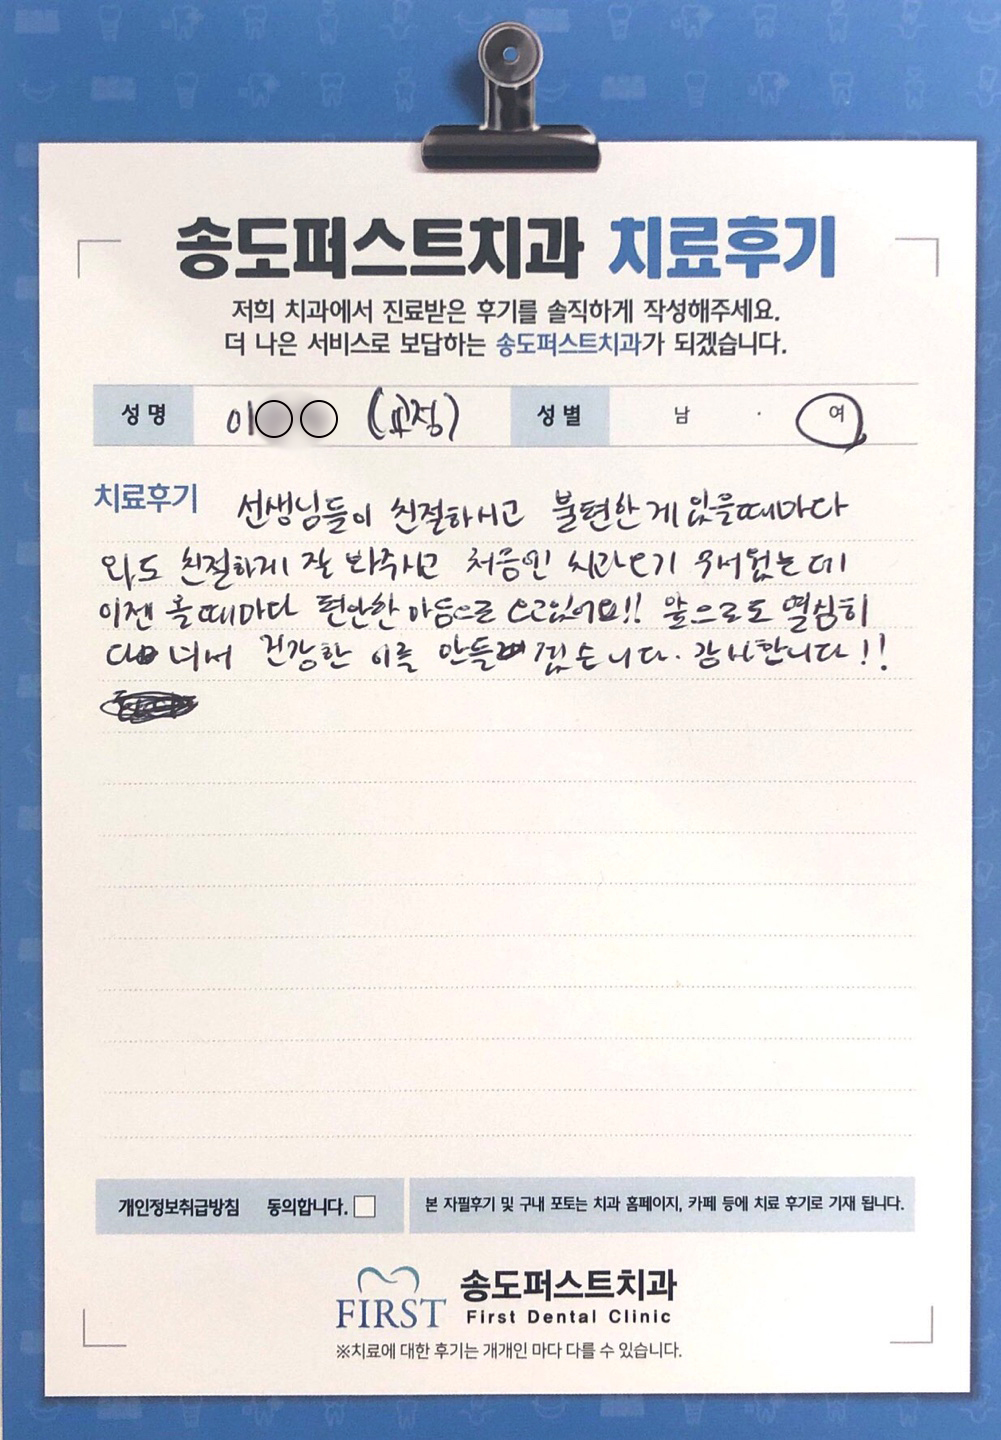 송도퍼스트치과 치료후기
저희 치과에서 진료받은 후기를 솔직하게 작성해주세요.
더 나은 서비스로 보답하는 송도퍼스트치과가 되겠습니다.
성명 이○○ (교정) 성별 남 · 여
치료후기 선생님들이 친절하시고 불편한게 있을때마다
와도 친절하게 잘 봐주시고 처음인 치과오기 무서웠는데
이젠 올때마다 편안한 마음으로 오고있어요!! 앞으로도 열심히
다녀서 건강한 이를 만들겠습니다. 감사합니다!!
개인정보취급방침 동의합니다.
본 자필후기 및 구내 포토는 치과 홈페이지, 카페 등에 치료 후기로 기재 됩니다.
FIRST 송도퍼스트치과
First Dental Clinic
※치료에 대한 후기는 개개인 마다 다를 수 있습니다.